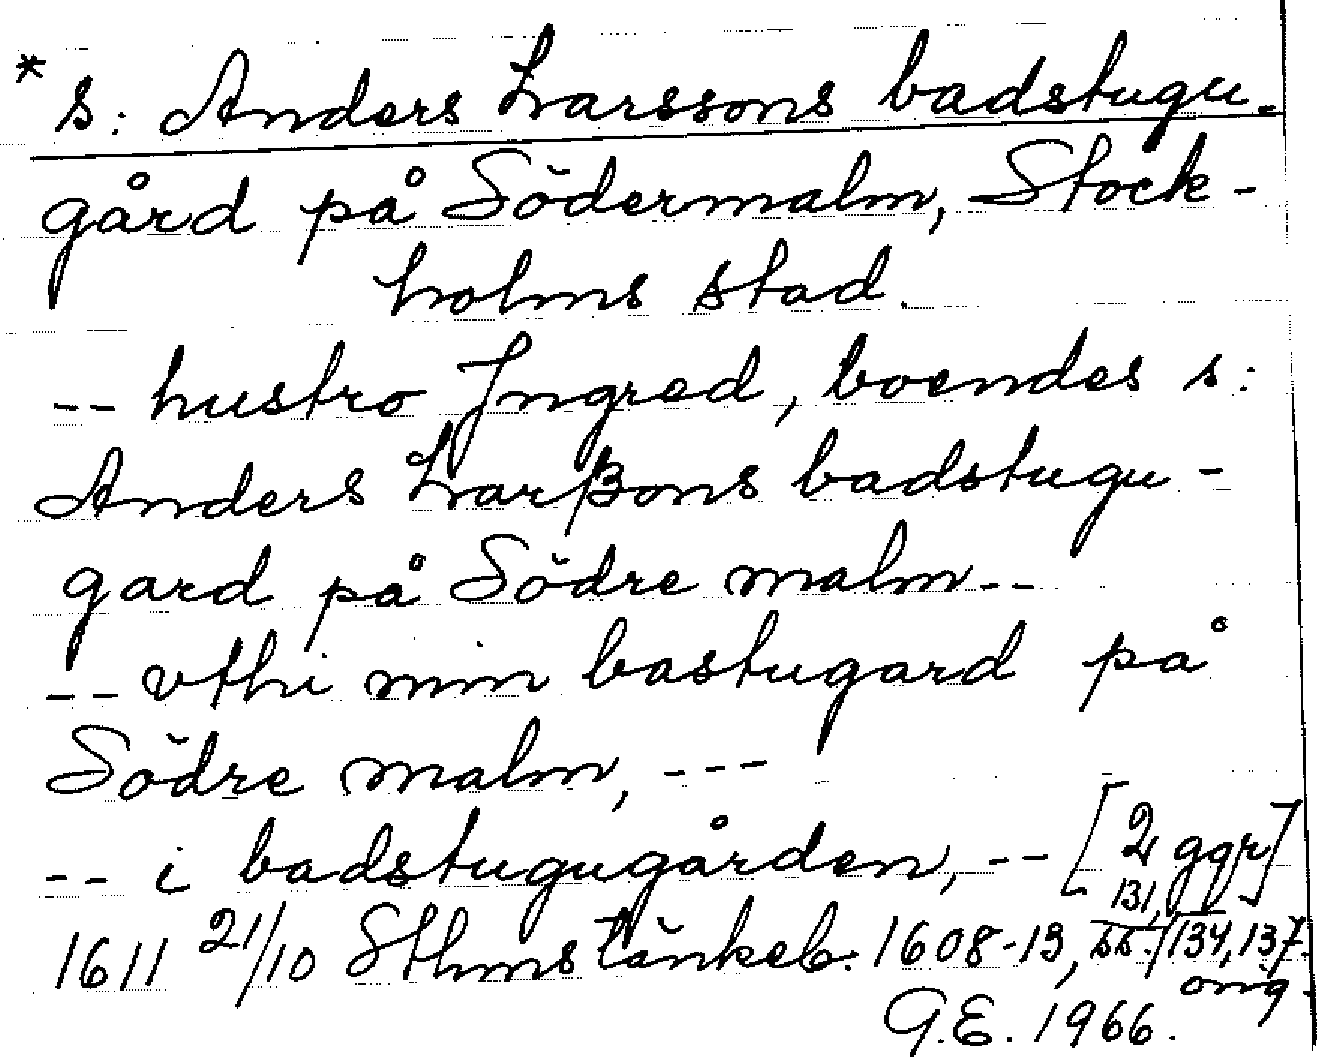 * S: Anders Larssons badstugu-
gård på Södermalm, Stock-
holms stad.
-- hustro Ingred, boendes s:
Anders Larßons badstugu-
gard på Södre malm--
-- vthi min bastugard på
Södre malm, ---
-- i badstugugården, -- [2 ggr]
1611 21/10 Sthms tänkeb. 1608-13, ss. 131, 134, 137.
orig.
G.E. 1966.